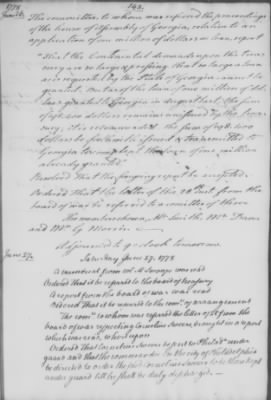 1778
June 26
142.
The committee to whom was referred the proceedings
of the house of Assembly of Georgia, relative to an
application of one million of dollars on loan, report
"That the Continental demands upon the treasury
are so large & pressing, that so large a loan
as requested by the State of Georgia cannot be
granted. But as of the loan of one million of dol.
lars granted to Georgia in August last, the sum
of dollars remains
it is recommended the sum of
dollars be
Georgia to the loan of one million
already granted."
Resolved That the foregoing report be accepted.
Ordered That the letter of this 26 inst. from the
board of war be referred to a committee of three
The members chosen, Mr. Smith, Mr.
and Mr. G Morris.
Adjourned to 9 o clock tomorrow.
June 27.
Saturday June 27. 1778
A memorial from col. S. Savage was read
Ordered That it be referred to the board of treasury
A report from the board of war was read
Ordered That it be referred to the comee. of arrangement
The comee. to whom was referred the letter of from the
board of war respecting Cornelius Sweers, brought in a report
which was read, whereupon
Ordered That Cornelius Sweers be sent to Philada. under
guard and that the commander in the city of Philadelphia
be directed to order the said Cornelius Sweers to be there kept
under guard till he shall be duly discharged.